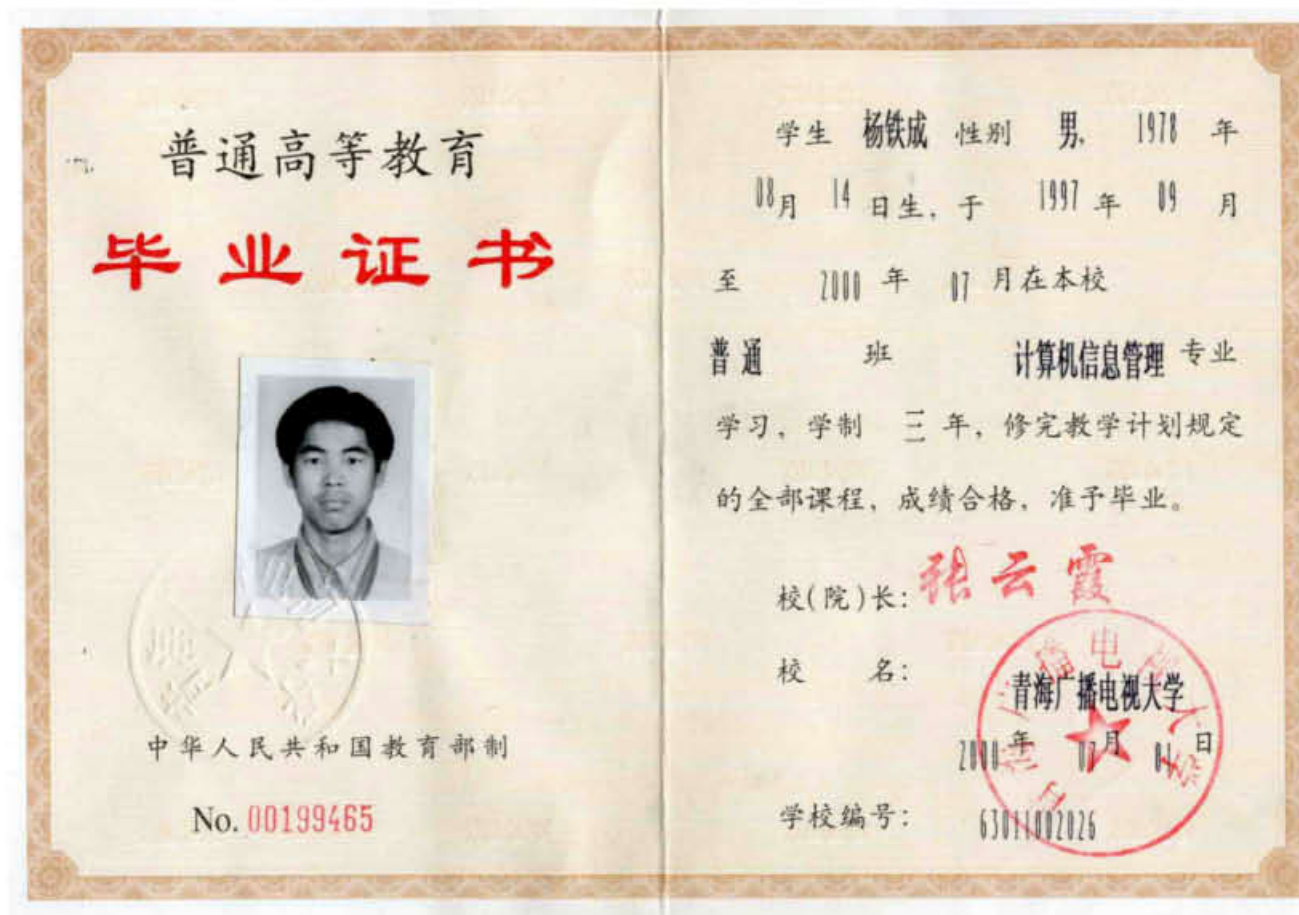 普通高等教育
毕业证书
中华人民共和国教育部制
No. 00199465
学生 杨铁成 性别 男, 1978 年
08月 14 日生, 于 1997 年 09 月
至 2000 年 07 月在本校
普通 班 计算机信息管理 专业
学习, 学制 三 年, 修完教学计划规定
的全部课程, 成绩合格, 准予毕业。
校(院)长: 张云霞
校 名: 青海广播电视大学
2000 年 07 月 01 日
学校编号: 63011002026